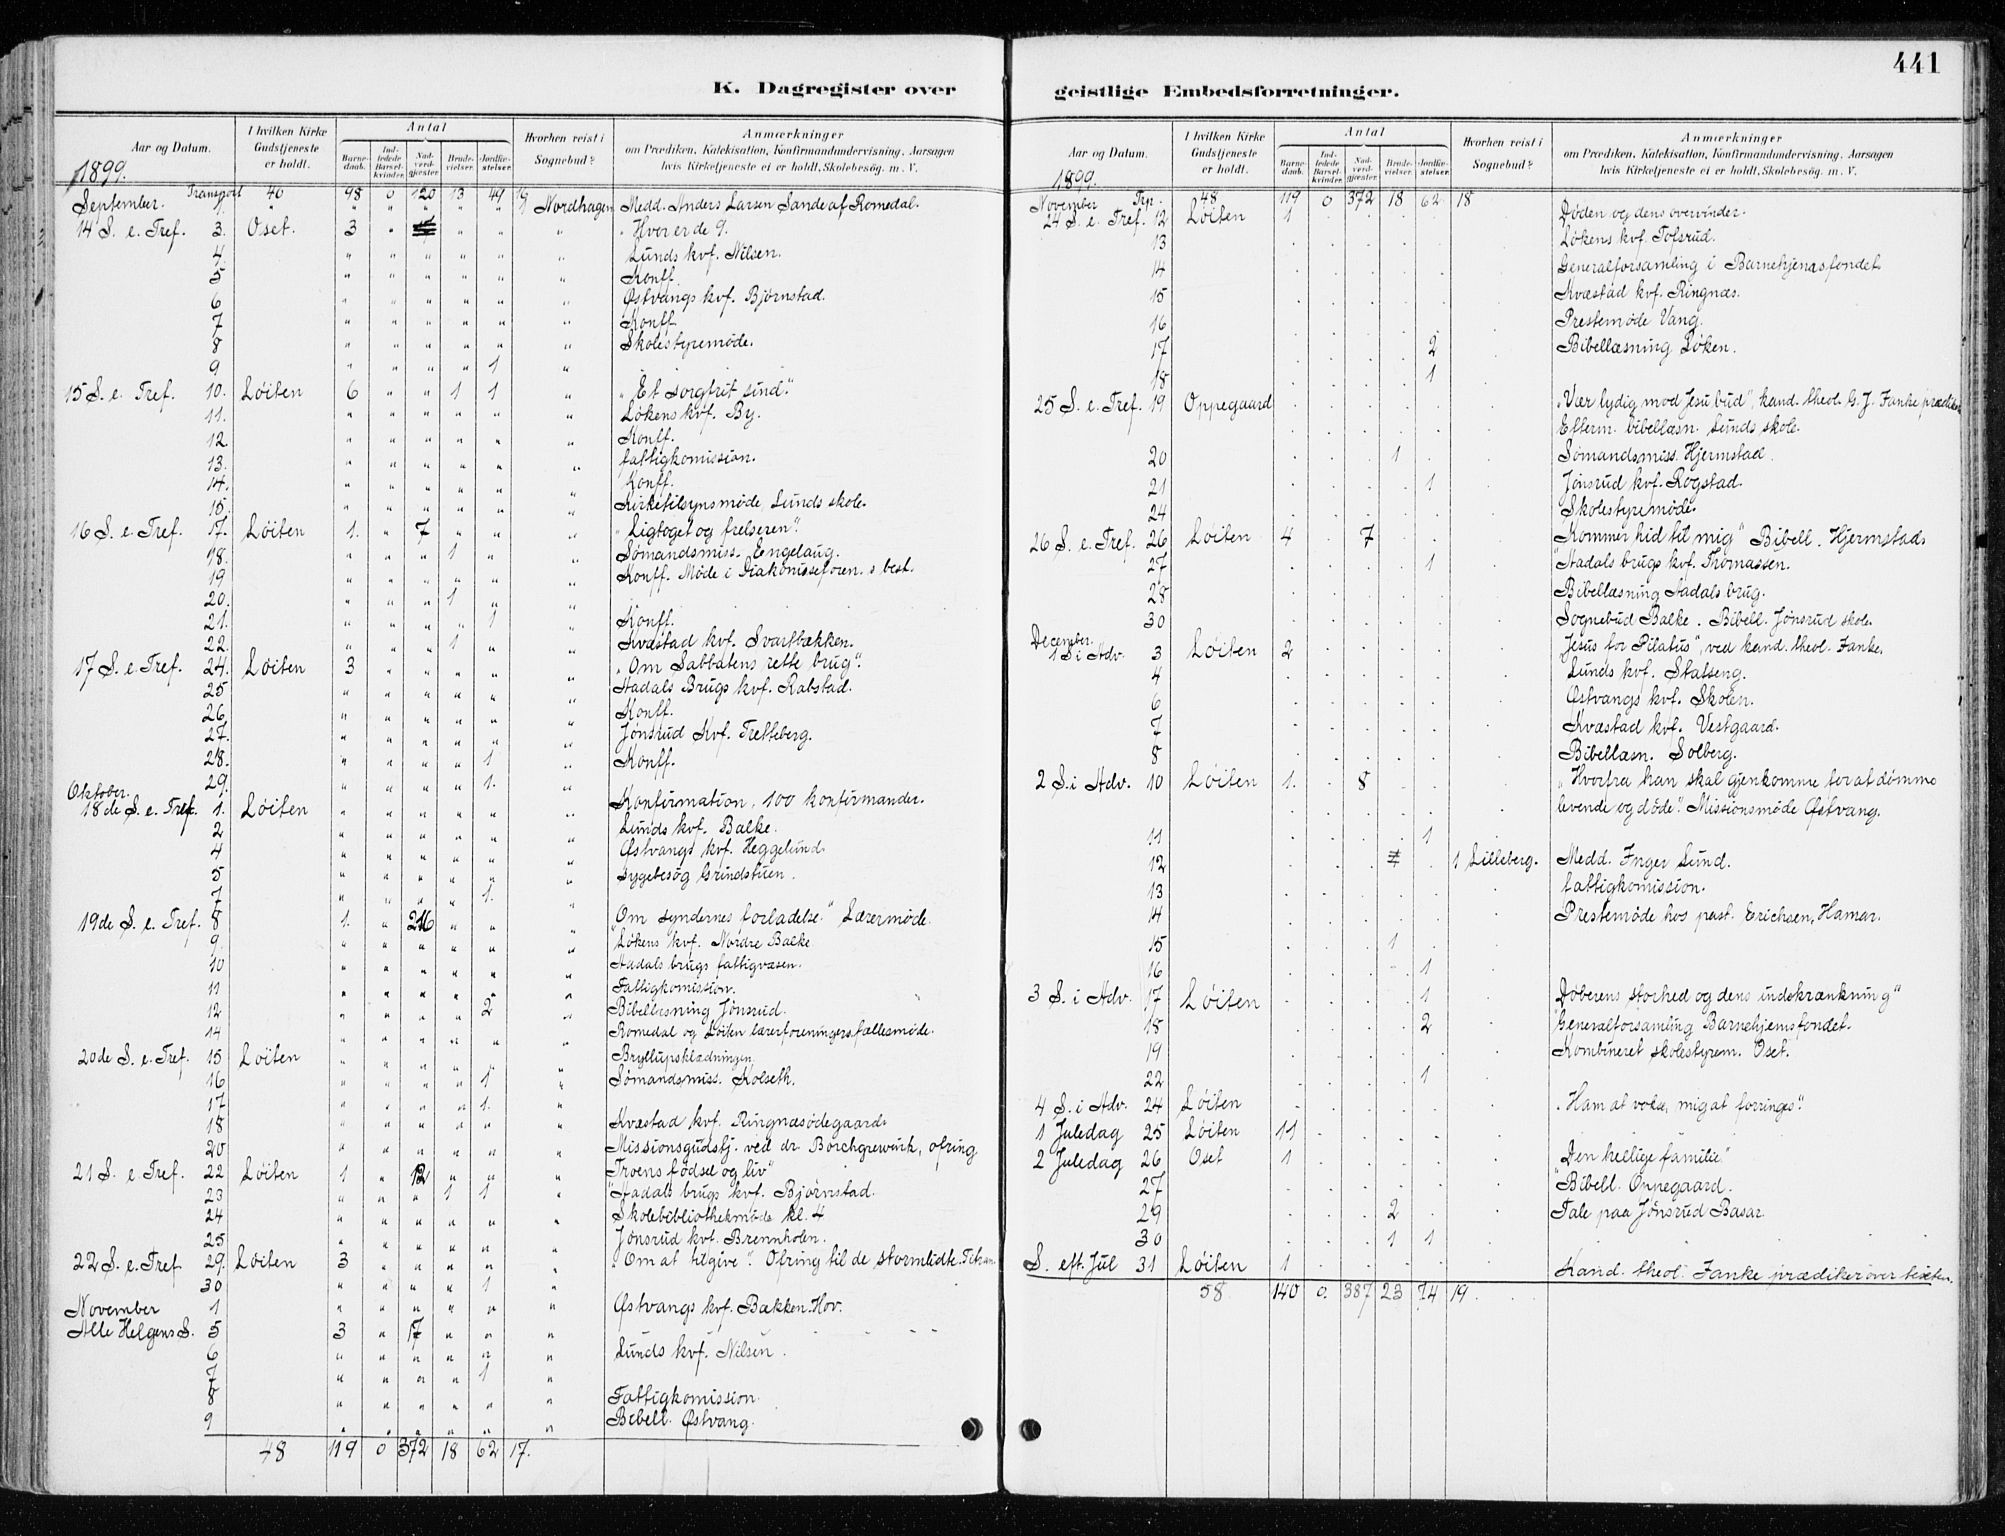 441
K. Dagregister over
Aar og Datum.
I hvilken Kirke Gudstjeneste er holdt.
Antal
Barne-daab.
Ind-ledede Barsel-kvinder.
Nad-verd-gjester.
Brude-vielser.
Jordfæ-stelser.
Hvorhen reist i Sognebud?
Anmærkninger
om Prædiken, Katekisation, Konfirmandundervisning, Aarsagen
hvis Kirketjeneste ei er holdt, Skolebesøg. m. V.
1899.
Transport 40 98 0 120 13 49 16
September. 1 Nordhagen Medd. Anders Larsen Sande af Romedal.
14 S. e. Tref. 3. Oset. 3 " " " " " Hver er de 9.
4. " " " " " " Lunds kvf. Nilsen.
5 " " " " " " Konff.
6 " " " " " " Østvangs kvf. Bjørnstad.
7 " " " " " " Konff.
8 " " " " " " Skolestyremøde.
9 " " " " 1 "
15 S. e. Tref. 10. Løiten 6 " " 1 1 " "Et sorgfrit sind."
11. " " " " " " Løkens kvf. By.
12. " " " " " " Konff.
13. " " " " " " fattigkomission.
14. " " " " " " Konff.
15. " " " " " " Kirketilsynsmøde, Lunds skole.
16 S. e. Tref. 17. Løiten 1. " 7 " " " "Ligtoget og frelseren".
18. " " " 1 " " Sømandsmiss. Engelaug.
19 " " " " " " Konff. Møde i Diakonisseforen.s best.
20. " " " 1 " "
21. " " " " 1 " Konff.
22. " " " 1 " " Kvæstad kvf. Svartbækken.
17 S. e. Tref. 24. Løiten 3 " " " " " "Om Sabbatens rette brug".
25 " " " " " " Aadals Brugs kvf. Rabstad.
26. " " " " " " Konff.
27. " " " " " " Jønsrud Kvf. Tretteberg.
28. " " " " 1 " Konff.
29. " " " " 1. "
Oktober.
18de S. e. Tref. 1. Løiten " " " " " " Konfirmation, 100 konfirmander.
2 " " " " " " Lunds kvf. Balke.
4 " " " " " " Østvangs kvf. Heggelund.
5 " " " " " " Sygebesøg Grindstuen.
7 " " " " 1. "
19de S. e. Tref. 8 Løiten 1. " 216 " " " "Om syndernes forladelse." Lærermøde.
9. " " " " " " Løkens kvf. Nordre Balke
10 " " " " " " Aadals brugs fattigvæsen.
11 " " " " " " Fattigkomission.
12 " " " " 2 " Bibellæsning Jønsrud.
14 " " " " " " Romedal og Løiten lærerforeningers fællesmøde.
20de S. e. Tref. 15 Løiten " " " " " " Bryllupsklædningen.
16 " " " " 1 " Sømandsmiss. Kolseth.
17 " " " " 1. "
18 " " " " " " Kvæstad kvf. Ringnæsødegaard.
20 " " " " " " Missionsgudstj. ved dr. Borchgrevink, ofring
21 S. e. Tref. 22 Løiten 1 " 12 " " " Troens fødsel og liv"
23 " " " 1 1 " "Aadals brugs kvf. Bjørnstad.
24 " " " " " " Skolebibliothekmøde kl. 4
25 " " " " " " Jønsrud kvf. Brennholen.
22 S. e. Tref 29. Løiten 3 " " " " " "Om at tilgive". Ofring til de stormlidte.
30 " " " " 1 "
November 1 " " " " " " Østvangs kvf. Bakken. Hov.
Alle Helgens S. 5 3 " 17 " " "
6 " " " " " " Lunds kvf. Nilsen.
7 " " " " 1 "
8 " " " " " " Fattigkomission.
9 " " " " " " Bibell. Østvang.
48 119 0 372 18 62 17.
geistlige Embedsforretninger.
Aar og Datum.
I hvilken Kirke Gudstjeneste er holdt.
Antal
Barne-daab.
Ind-ledede Barsel-kvinder.
Nad-verd-gjester.
Brude-vielser.
Jordfæ-stelser.
Hvorhen reist i Sognebud?
Anmærkninger
om Prædiken, Katekisation, Konfirmandundervisning, Aarsagen
hvis Kirketjeneste ei er holdt, Skolebesøg. m. V.
1899.
November Trp. 48 119 0 372 18 62 18
24 S. e. Tref. 12 Løiten 1 Døden og dens overvinder.
13 Løkens kvf. Tofsrud.
14 Generalforsamling i Barnehjemsfondet.
15 Kvæstad kvf. Ringnæs.
16 Prestemøde Vang.
17 2 Bibellæsning Løken.
18 1
25 S. e. Tref. 19 Oppegaard "Vær lydig mod Jesu bud", kand. theol. G. J. Fanke prædiker
Efterm. bibellæsn. Lunds skole.
20 1 Sømandsmiss. Hjermstad.
21 1 Jønsrud kvf. Rogstad.
24 Skolestyremøde.
26 S. e. Tref. 26 Løiten 4 7 "Kommer hid til mig" Bibell. Hjermstad.
27 1 Aadals brugs kvf. Thomassen.
28 Bibellæsning Aadals brug.
30 Sognebud Balke. Bibell. Jønsrud skole.
December.
1 S i Adv. 3 Løiten 2 Jesus for Pilatus", ved kand. theol. Fanke.
4 Lunds kvf. Statseng.
6 Østvangs kvf. Skolen.
7 Kvæstad kvf. Vestgaard.
8 Bibellæsn. Solberg.
2 S. i Adv. 10 Løiten 1. 8 "Hvorfra han skal gjenkomme for at dømme
levende og døde". Missionsmøde Østvang.
11 1
12 1 Lilleberg. Medd. Inger Lund.
13 fattigkomission.
14 Prestemøde hos past. Erichsen, Hamar.
15 1
16 1
3 S. i Adv. 17 Løiten 1 Døberens storhed og dens indskrænkning"
18 2 Generalforsamling Barnehjemsfondet.
19 Kombineret skolestyrem. Oset.
22 1
4 S. i Adv. 24 Løiten "Ham at vokse, mig at forringes".
1 Juledag 25 Løiten 11
2 Juledag 26 Oset 1 "Den hellige familie"
27 Bibell. Oppegaard.
29 2 Tale paa Jønsrud Basar.
30 1 1
S. eft. Jul 31 Løiten 1 Kand. theol. Fanke prædiker over texten.
58 140 0. 387 23 74 19